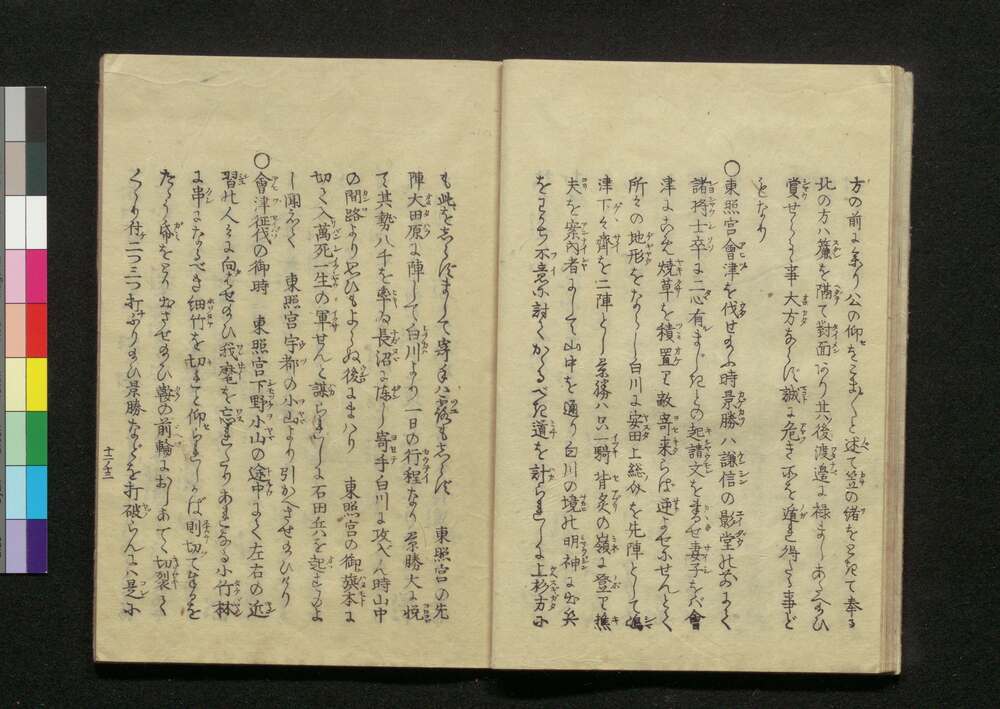 方の前に参り公の仰をこま〴〵と述て笠の緒をときて奉る
北の方ハ簾を隔て對面あり其後渡邊に禄ましあたへ給ひ
賞せらるゝ事大方ならず誠に危き所を遁れ得たる事ど
もなり
○東照宮會津を伐せ給ふ時景勝ハ謙信の影堂の前にて
諸将士卒に二心有まじきとの起請文をまゐせ妻子をバ會
津にこめ焼草を積置て敵寄来らば逆よせにせんとて
所々の地形をならし白川に安田上総介を先陣として嶋
津下々齋を二陣とし景勝ハ只一騎背炙の嶺に登て樵
夫を案内者にして山中を通り白川の境の明神に出兵
をわかち不意に討てかゝるべき道を計られしに上杉方に
も此をしらずまして寄手ハ露もしらず　東照宮の先
陣大田原に陣して白川より一日の行程なり景勝大に悦
て其勢八千を率ゐ長沼に陣し寄手白川に攻べん時山中
の間路より思ひもよらぬ後にまハり　東照宮の御旗本に
切て入萬死一生の軍せんと謀られしに石田兵を起せるよ
し聞えて　東照宮宇都の小山より引かへさせ給ひけり
○會津征伐の御時　東照宮下野小山の途中にて左右の近
習の人々に向ハせ給ひ我麾を忘れたりあれなる小竹林
に串になるべき細竹を切れと仰られしかば則切て奉るを
たゝう帋をとり出させ給ひ鞍の前輪におしあてゝ切裂て
くゝり付二つ三つ打ふり給ひ景勝などを打破らんにハ是に
十二ノ十三